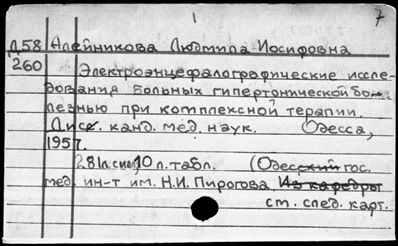 7
Д58 Алейникова Людмила Иосифовна
260 Электроэнцефалографические иссле-
дования больных гипертонической бо-
лезнью при комплексной терапии.
Дисс. канд. мед. наук. Одесса,
1957.
281л. 10 л. табл. (Одесский гос.
мед. ин-т им. Н.И. Пирогова Из кафедры
см. след. карт.